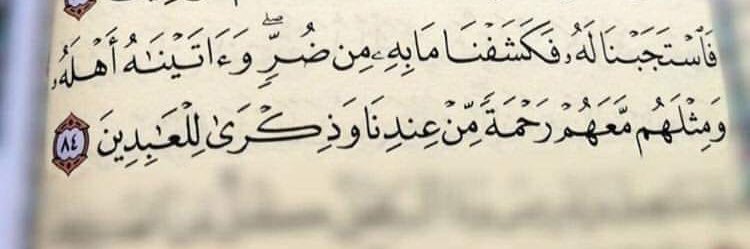 فَٱسۡتَجَبۡنَا لَهُۥ فَكَشَفۡنَا مَا بِهِۦ مِن ضُرّٖۖ وَءَاتَيۡنَٰهُ أَهۡلَهُۥ
وَمِثۡلَهُم مَّعَهُمۡ رَحۡمَةٗ مِّنۡ عِندِنَا وَذِكۡرَىٰ لِلۡعَٰبِدِينَ ٨٤